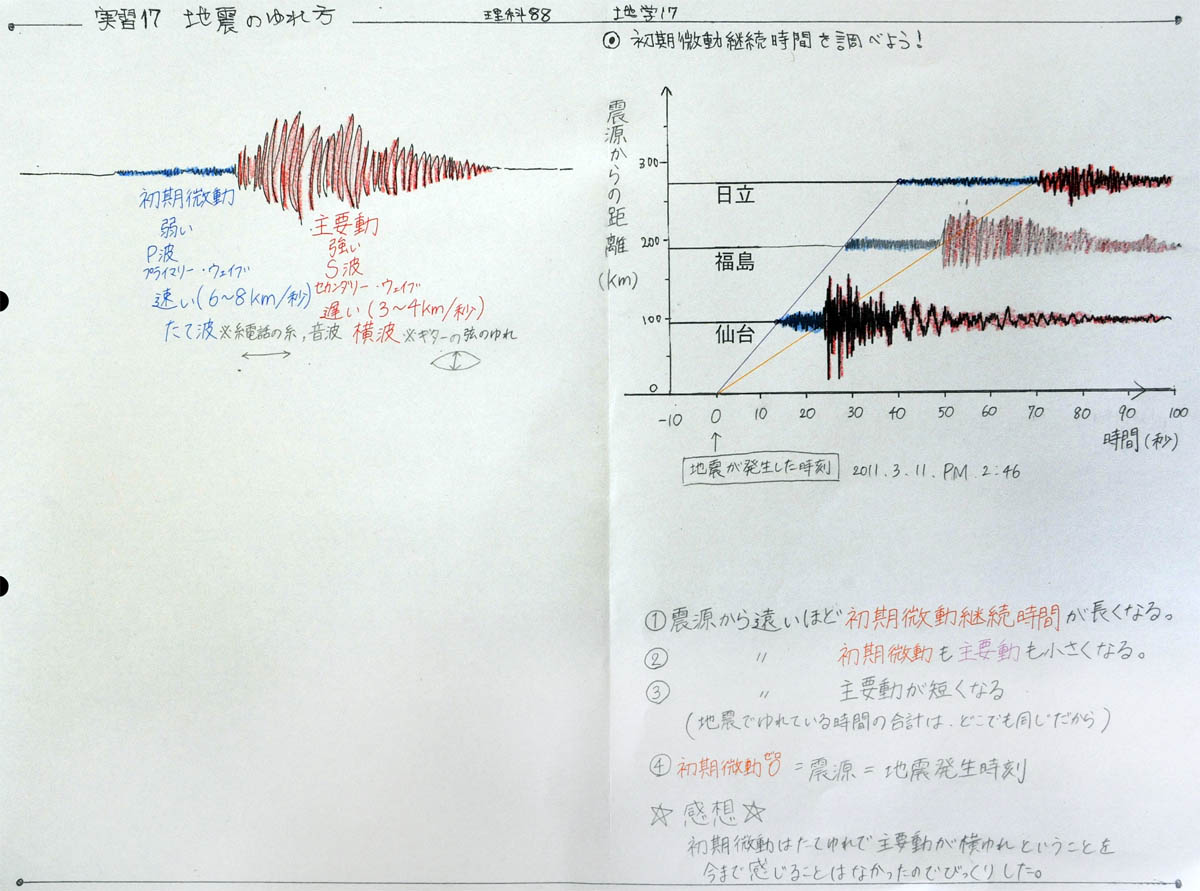 実習17 地震のゆれ方
理科88 地学17
初期微動
弱い
P波
プライマリー・ウェイブ
速い(6~8km/秒)
たて波 ※糸電話の糸,音波
主要動
強い
S波
セカンダリー・ウェイブ
遅い(3~4km/秒)
横波 ※ギターの弦のゆれ
◎ 初期微動継続時間を調べよう!
震源からの距離(km)
300
日立
200
福島
100
仙台
0
-10 0 10 20 30 40 50 60 70 80 90 100
時間(秒)
↑
地震が発生した時刻 2011.3.11.PM.2:46
①震源から遠いほど初期微動継続時間が長くなる。
② 〃 初期微動も主要動も小さくなる。
③ 〃 主要動が短くなる
(地震でゆれている時間の合計は、どこでも同じだから)
④初期微動0 ゼロ =震源=地震発生時刻
☆感想☆
初期微動はたてゆれで主要動が横ゆれということを
今まで感じることはなかったのでびっくりした。